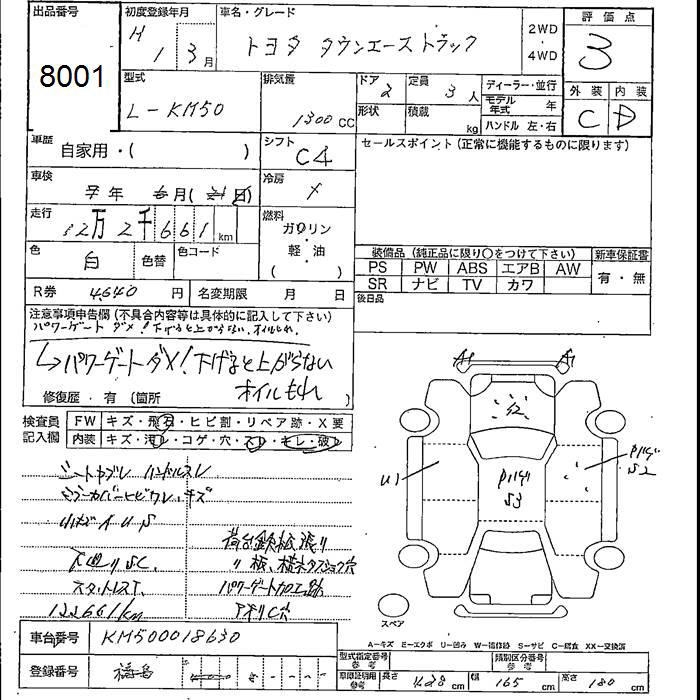 出品番号
8001
初度登録年月
H 1 3月
車名・グレード
トヨタ タウンエーストラック
2WD
・
4WD
評価点
3
型式
L-KM50
排気量
1300CC
ドア
2
定員
3人
形状
積蔵
kg
ディーラー・並行
モデル年式 年
ハンドル 左・右
外装 内装
C D
車歴
自家用・( )
シフト
C4
セールスポイント (正常に機能するものに限ります)
車検
年 月( 日)
冷房
走行
12万2千661km
燃料
ガソリン
・
軽・油
( )
色
白
色替
色コード
装備品 (純正品に限り○をつけて下さい)
新車保証書
PS PW ABS エアB AW
SR ナビ TV カワ
有・無
R券 4640円
名変期限 月 日
後日品
注意事項申告欄 (不具合内容等は具体的に記入して下さい)
パワーゲートダメ!下げると上がらない、オイルもれ、
パワーゲートダメ!下げると上がらない
オイルもれ
修復歴・有 (箇所
検査員
記入欄
FW キズ・飛石・ヒビ割・リペア跡・X要
内装 キズ・汚レ・コゲ・穴・スレ・キレ・破レ
A1 A1
U1
S3
S2
シートヤブレ ハンドルスレ
ミラーカバーヒビワレ・キズ
荷台鉄板張り
下廻りSC
パワーゲート加工跡
スタットレスT
122661km
スペア
車台番号 KM500018630
登録番号 福島
A-キズ E-エクボ U-凹み W-補修跡 S-サビ C-腐食 XX-交換済
型式指定番号
参考
類別区分番号
参考
車庫証明用
参考
長さ 428cm 幅 165cm 高さ 180cm